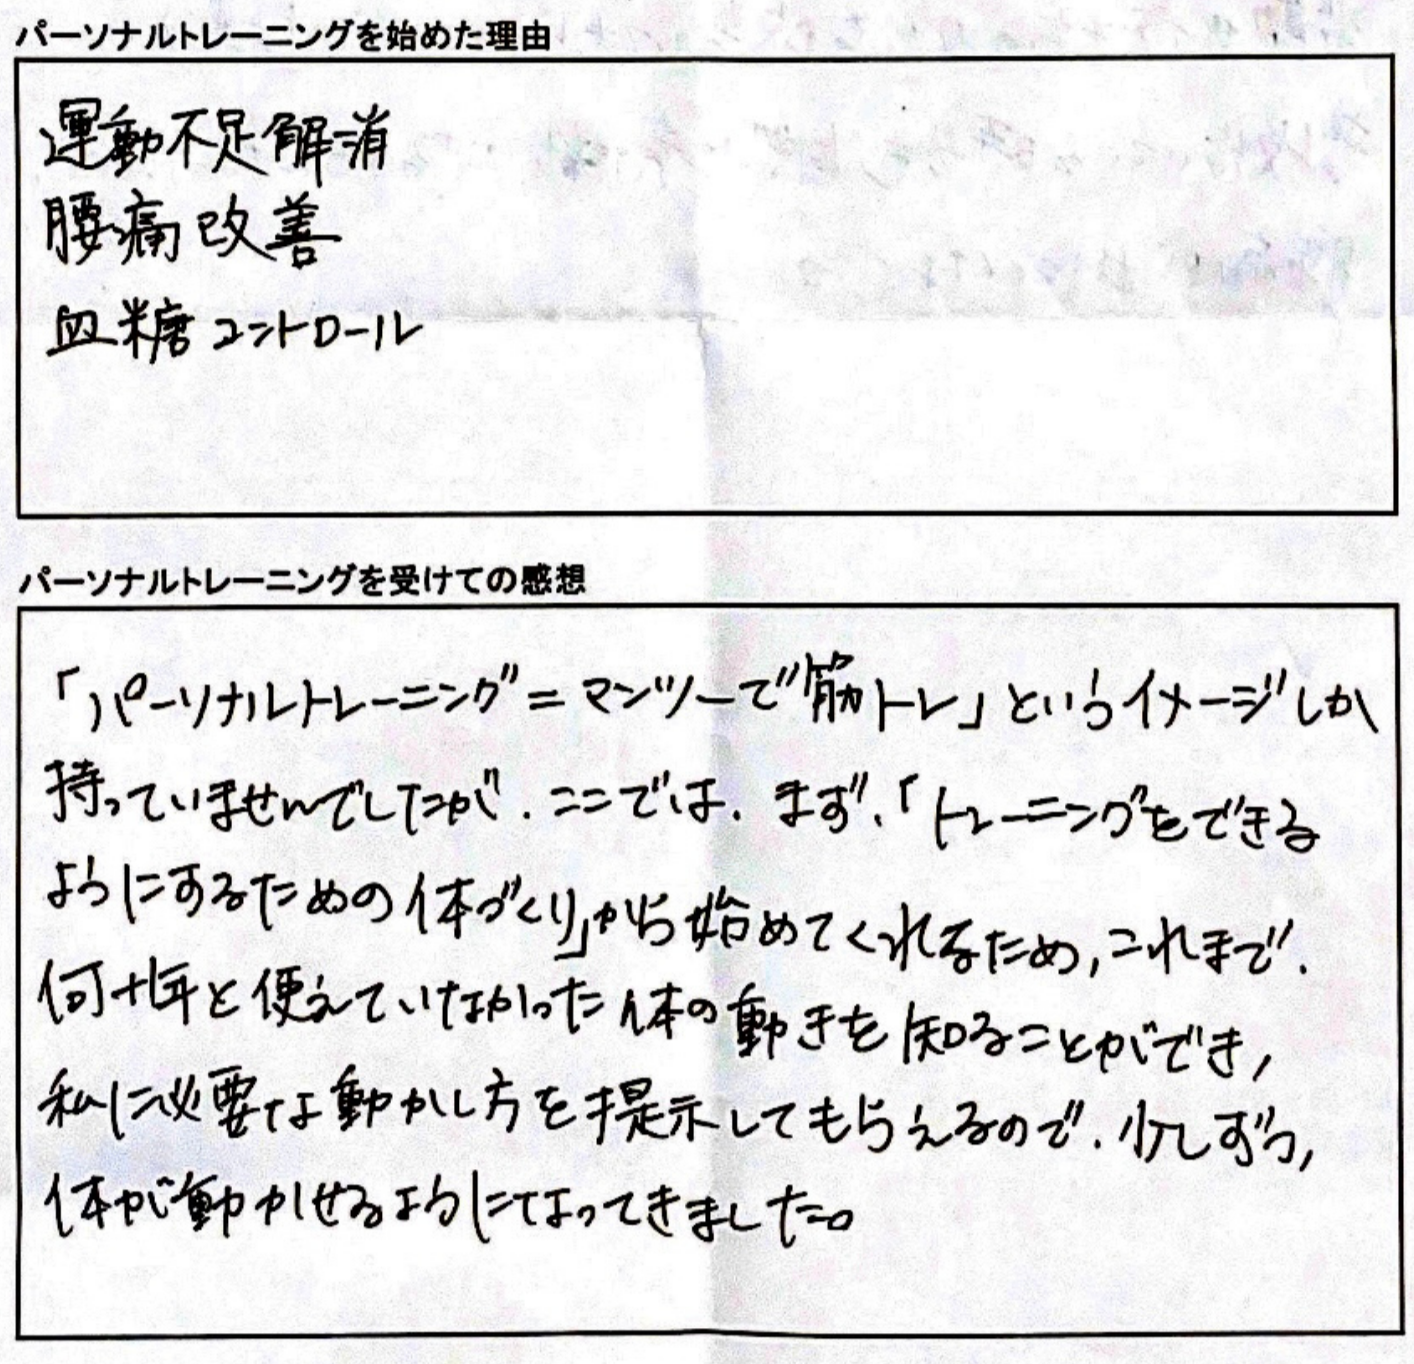 パーソナルトレーニングを始めた理由
運動不足解消
腰痛改善
血糖コントロール
パーソナルトレーニングを受けての感想
「パーソナルトレーニング=マンツーで筋トレ」というイメージしか
持っていませんでしたが、ここでは、まず、「トレーニングをできる
ようにするための体づくり」から始めてくれるため,これまで、
何十年と使えていなかった体の動きを知ることができ,
私に必要な動かし方を提示してもらえるので、少しずつ,
体が動かせるようになってきました。